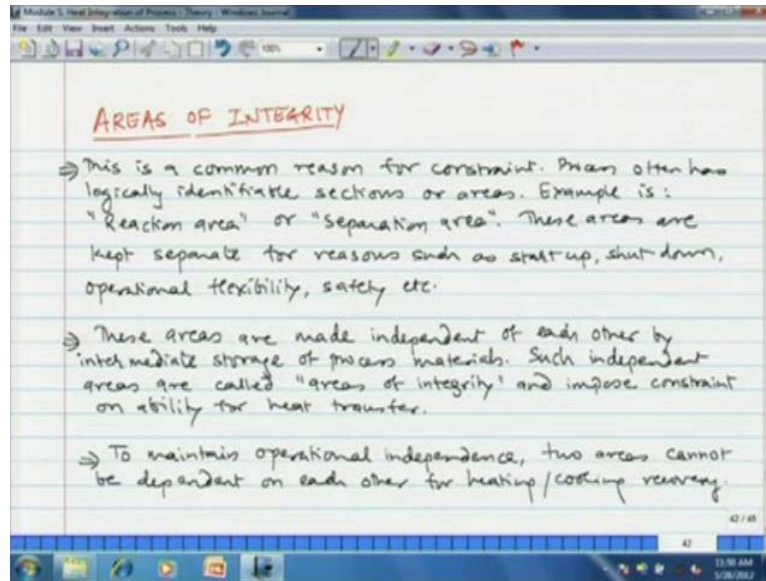 Module 5. Heat Integration of Process - Theory - Windows Journal
File Edit View Insert Actions Tools Help
100%
AREAS OF INTEGRITY
⇒ This is a common reason for constraint. Process often has
logically identifiable sections or areas. Example is:
"Reaction area" or "Separation area". These areas are
kept separate for reasons such as start up, shut down,
operational flexibility, safety etc.
⇒ These areas are made independent of each other by
intermediate storage of process materials. Such independent
areas are called "areas of integrity" and impose constraint
on ability for heat transfer.
⇒ To maintain operational independence, two areas cannot
be dependent on each other for heating/cooling recovery.
42 / 45
42
11:50 AM
5/28/2012